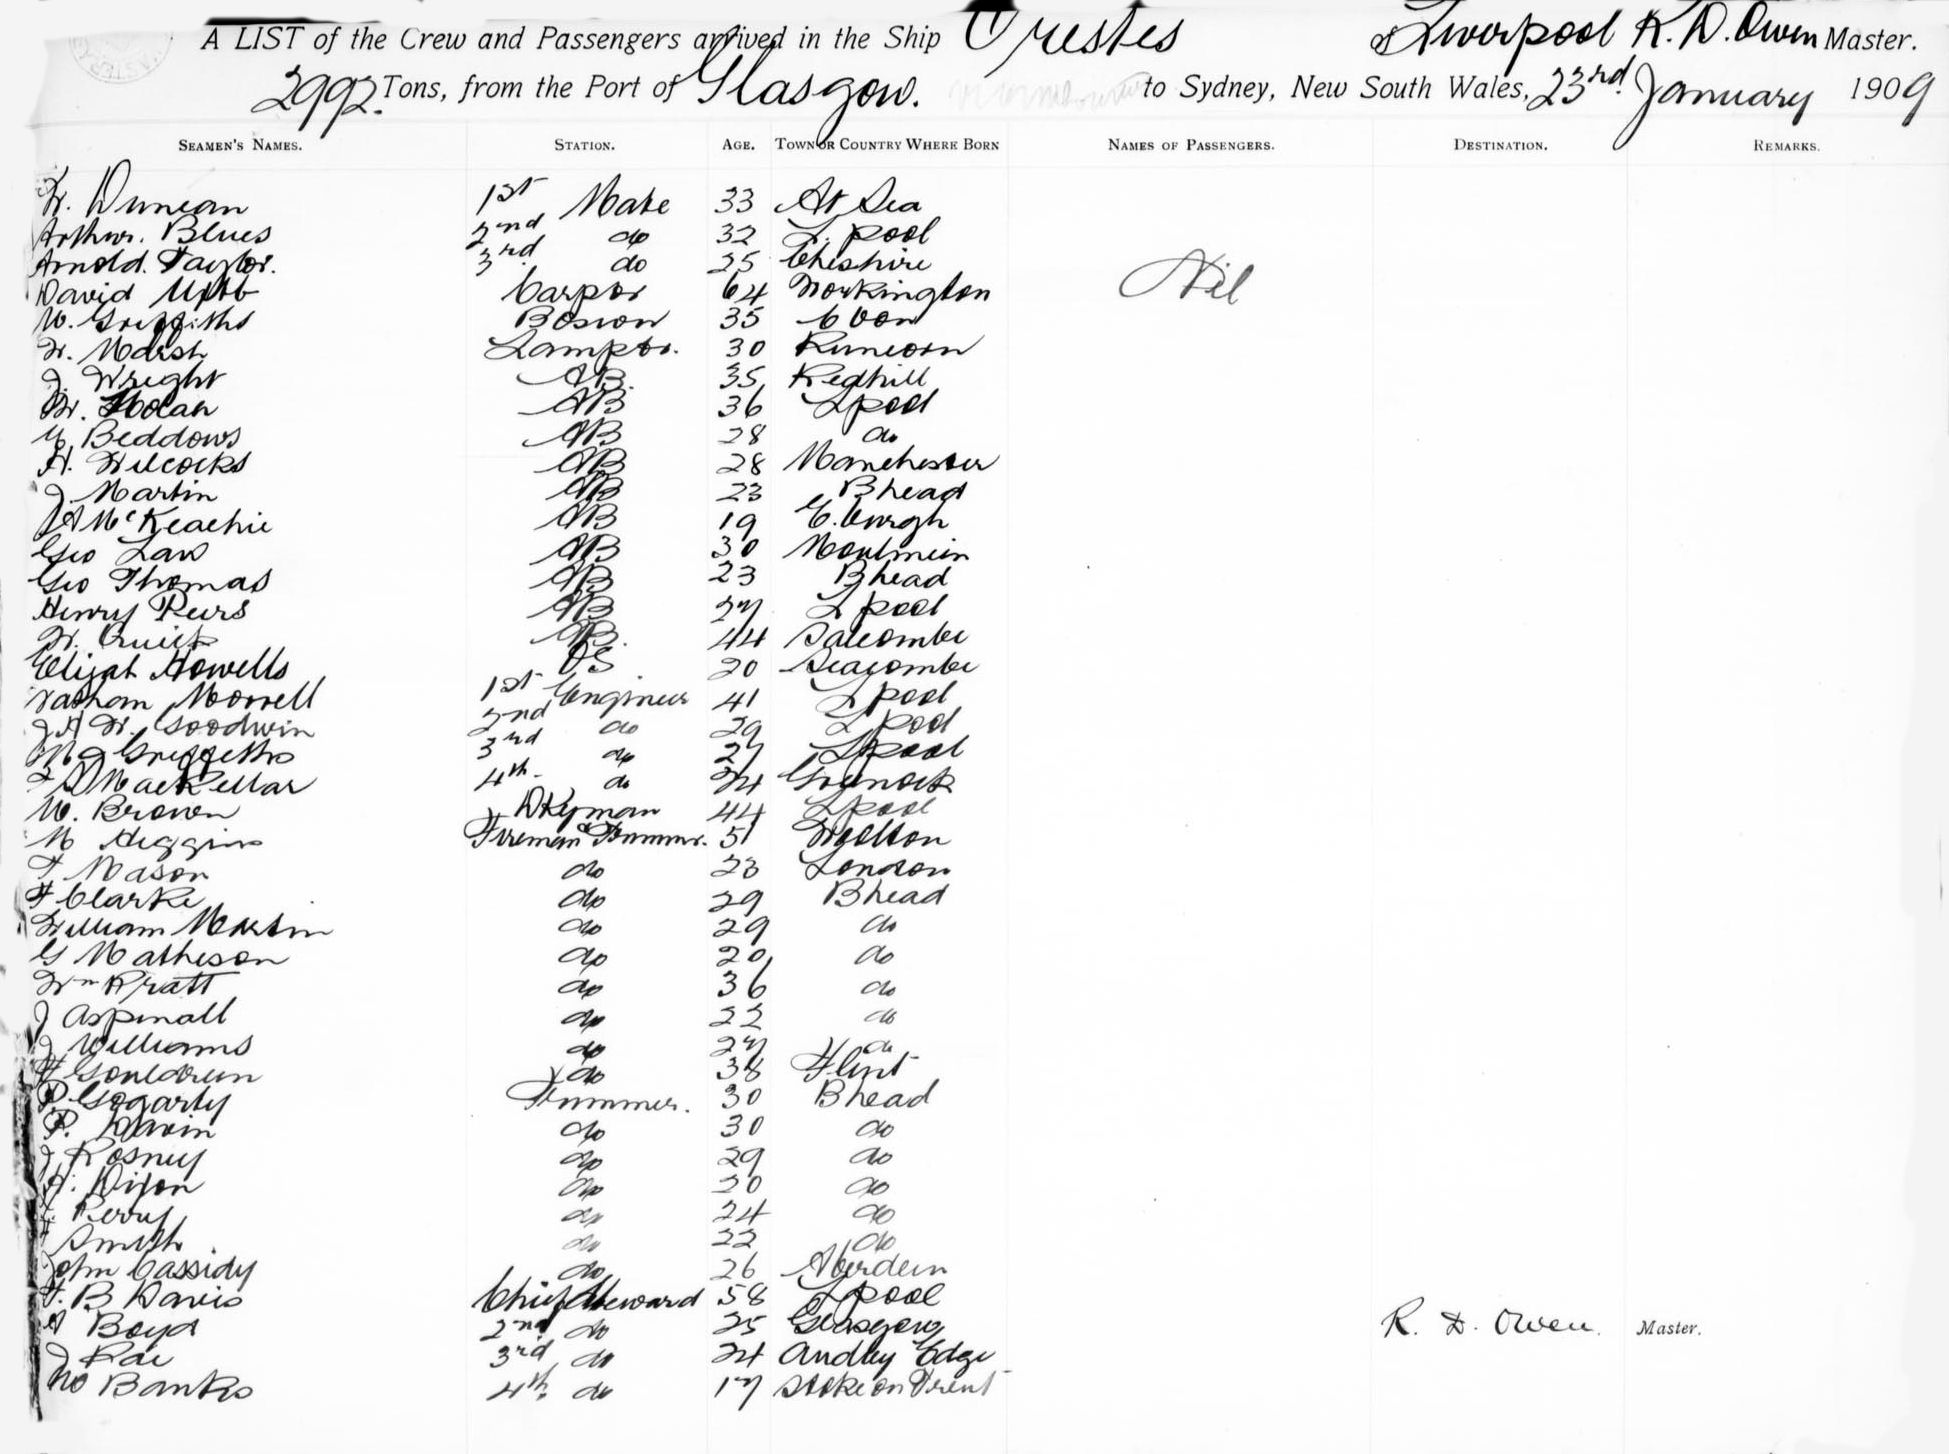 A LIST of the Crew and Passengers arrived in the Ship Orestes of Liverpool R. D. Owen Master.
2992 Tons, from the Port of Glasgow. to Sydney, New South Wales, 23rd January 1909
SEAMEN'S NAMES. STATION. AGE. TOWN OR COUNTRY WHERE BORN NAMES OF PASSENGERS. DESTINATION. REMARKS.
W. Duncan 1st Mate 33 At Sea
Arthur. Blues 2nd do 32 L. pool
Arnold. Taylor. 3rd do 25 Cheshire
David Webb Carptr 64 Workington Nil
W. Griffiths Boson 35 C Von
W. Marsh Lamptr. 30 Runcorn
J. Wright AB. 35 Redhill
W. AB 36 Lpool
Beddows AB 28 do
H. Wilcocks AB 28 Manchester
J. Martin AB 23 Bhead
J A McKeachie AB 19 E. burgh
Geo Law AB 30 Moulmein
Geo Thomas AB 23 Bhead
Henry Peers AB 27 L pool
W. Quick AB. 44 Salcombe
Elijah Howells OS 20 Seacombe
Nathan Morrell 1st Engineer 41 L pool
J H W. Goodwin 2nd do 29 L pool
Griffiths 3rd do 27 Lpool
MacKellar 4th do 24 Greenock
W. Brown Dkyman 44 Lpool
M Higgins Fireman & Trimmr. 51 Woolton
T Mason do 23 London
F Clarke do 29 Bhead
William Martin do 29 do
G Matheson do 20 do
Wm Pratt do 36 do
J Aspinall do 22 do
J Williams do 27 do
Gouldrun do 38 Flint
P. Gogarty Trimmer. 30 Bhead
P. do 30 do
J Rosney do 29 do
Dixon do 20 do
Perry do 24 do
Smyth do 22 do
John Cassidy do 26 Aberdeen
B Davis Chief Steward 58 Lpool
Boyd 2nd do 25 Glasgow R. D. Owen. Master.
J Rae 3rd do 24 Andley Edge
Banks 4th do 17 Stoke on Trent